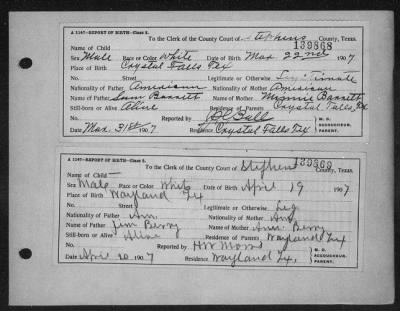 A 1147-REPORT OF BIRTH-Class 5.
To the Clerk of the County Court of Stephens County, Texas.
139868
Name of Child
Sex Male Race or Color White Date of Birth Mar 22nd 1907
Place of Birth Crystal Falls Tex
No. Street Legitimate or Otherwise Legitimate
Nationality of Father American Nationality of Mother American
Name of Father Sam Barrett Name of Mother Minnie Barrett
Still-born or Alive Alive Residence of Parents Crystal Falls, Tex
Reported by Ball M. D. ACCOUCHEUR. PARENT.
Date Mar. 31st 1907 Residence Crystal Falls Tex
A 1147-REPORT OF BIRTH-Class 5.
To the Clerk of the County Court of Stephens County, Texas.
139869
Name of Child
Sex Male Race or Color White Date of Birth April 19 1907
Place of Birth Wayland Tex
No. Street Legitimate or Otherwise Leg
Nationality of Father Am. Nationality of Mother Am
Name of Father Jim Berry Name of Mother Berry
Still-born or Alive Alive Residence of Parents Wayland Tex
Reported by HW M. D. ACCOUCHEUR. PARENT.
Date April 20 1907 Residence Wayland Tex.